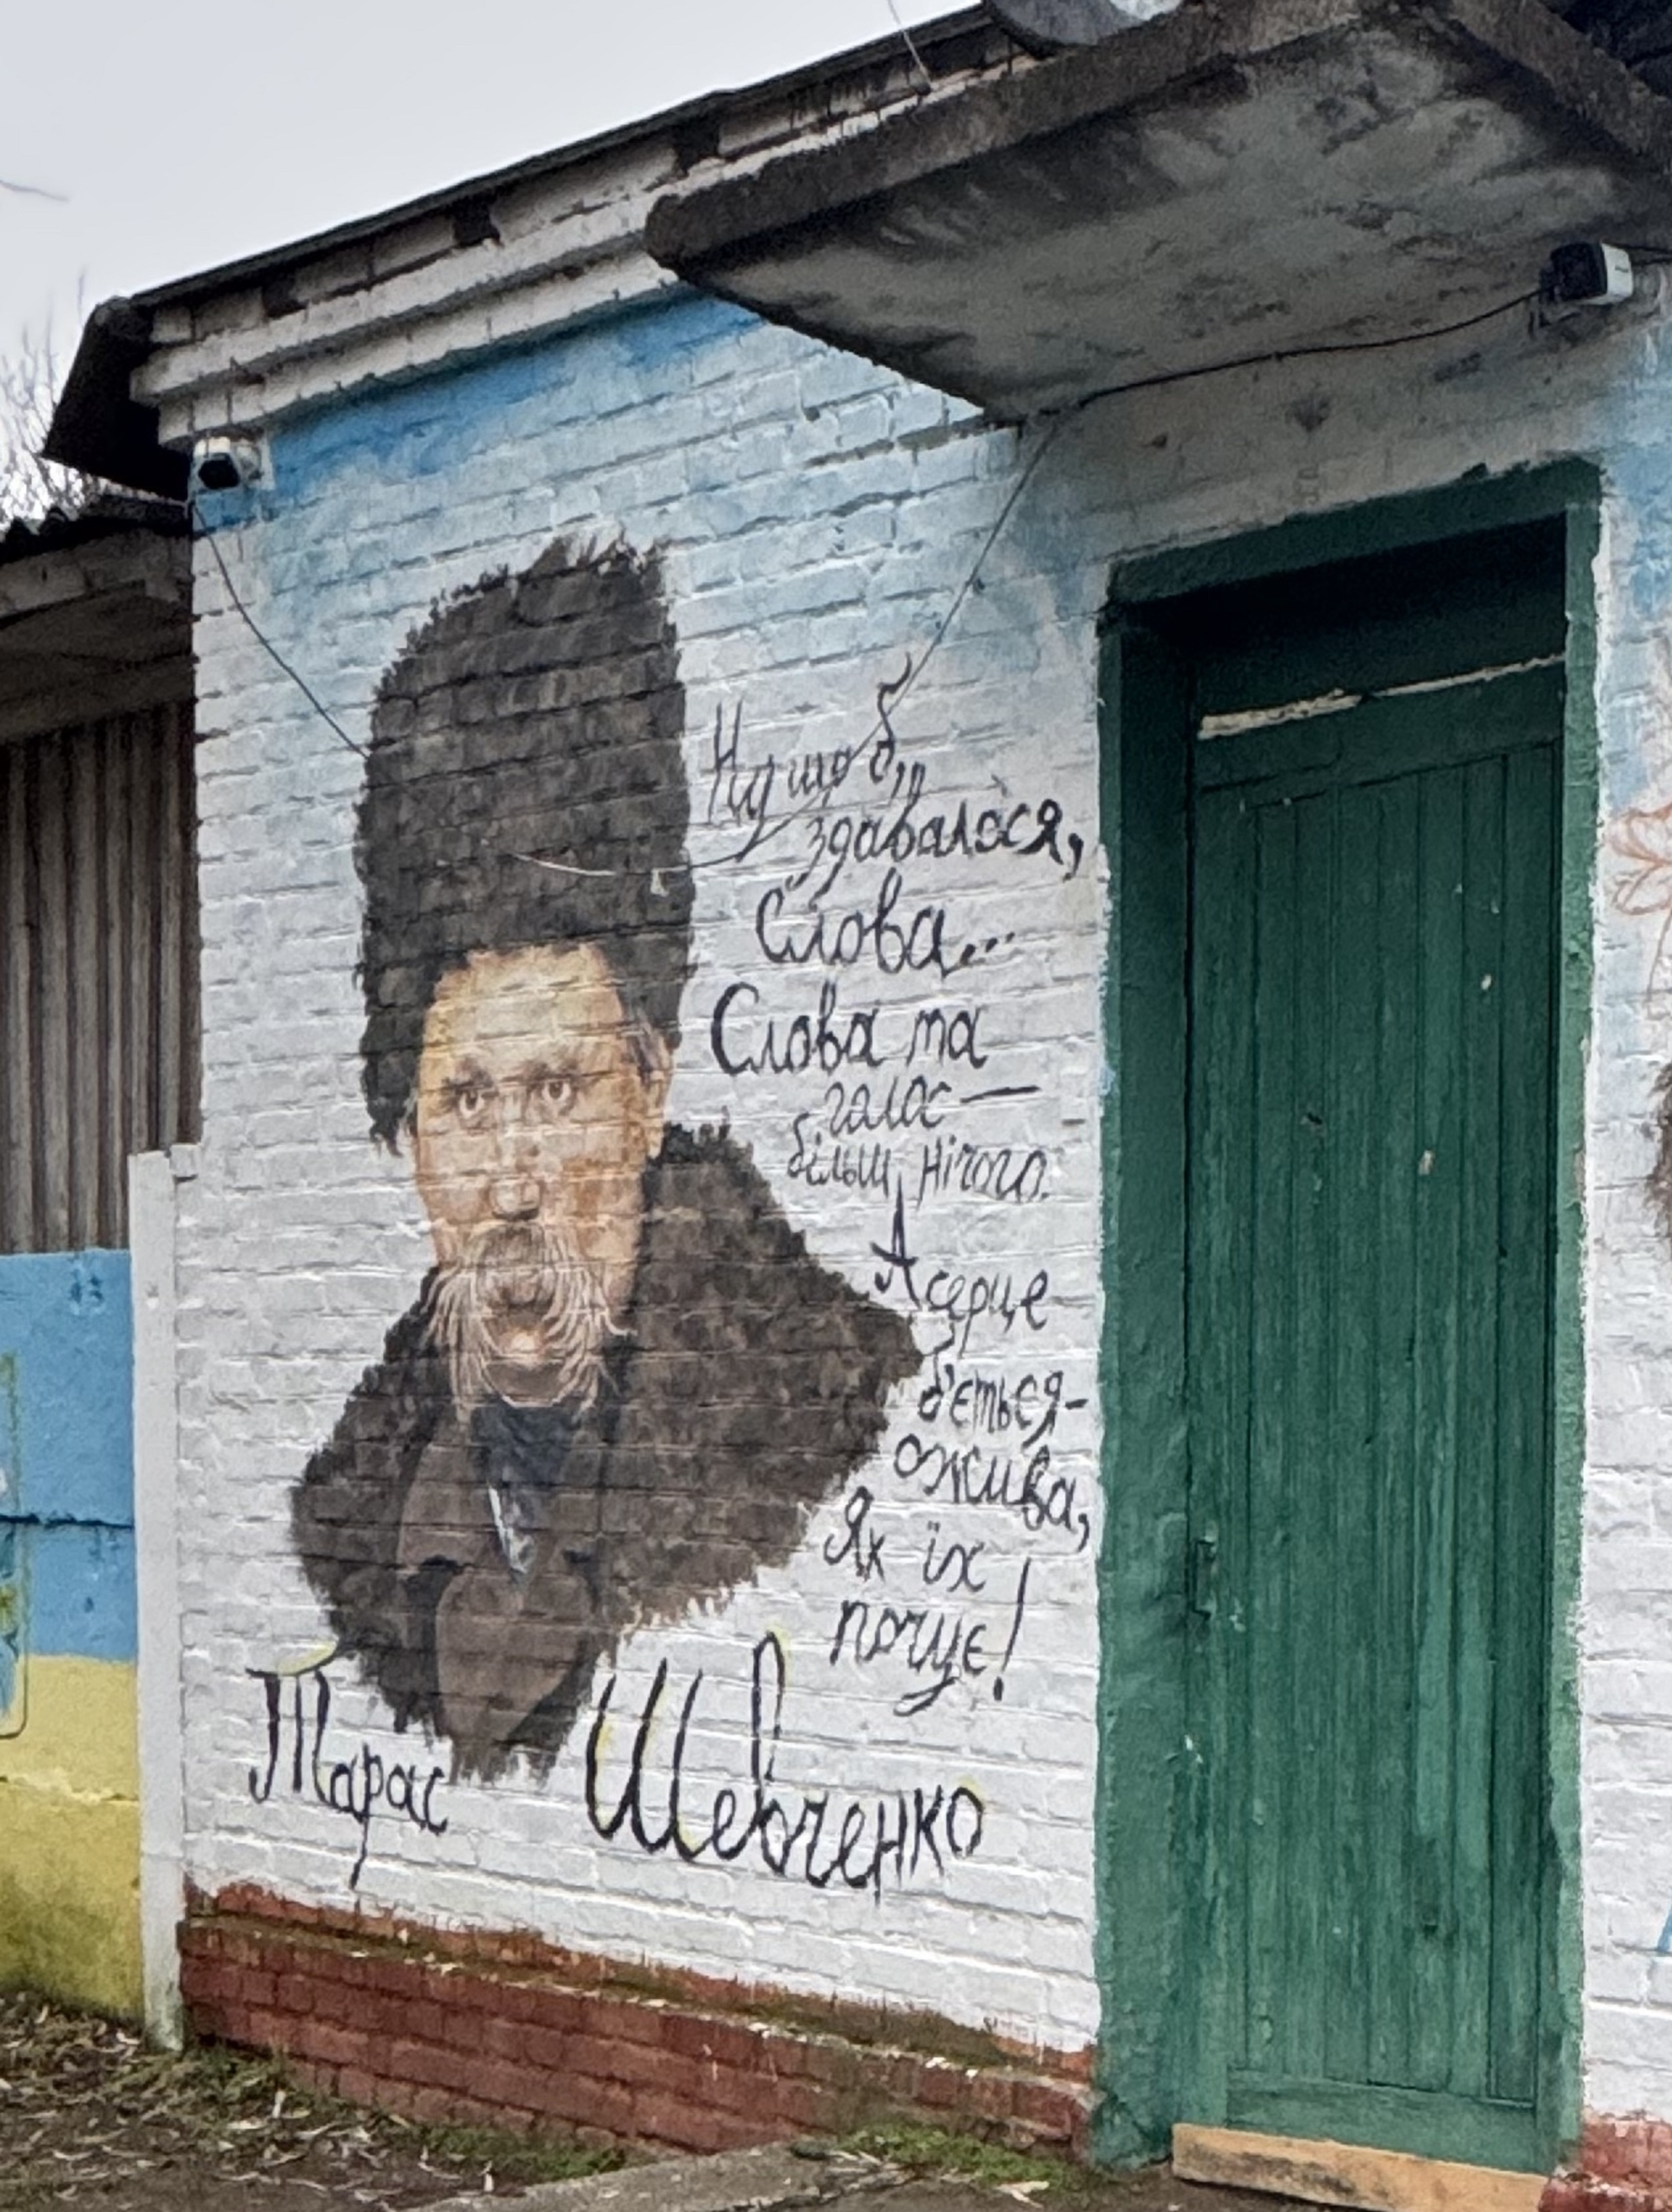 Ну що б,,
здавалося,
Слова...
Слова та
голос —
більш нічого.
А серце
б'ється-
ожива,
Як їх
почує!
Тарас Шевченко